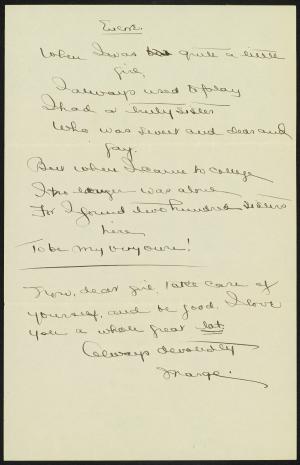 When I was quite a little
girl,
I always used to play
I had a baby sister
Who was sweet and dear and
gay.
But when I came to college
I no longer was alone
For I found two hundred sisters
here
To be my very own!
Now, dear girl, take care of
yourself, and be good. I love
you a whole great lot.
Always devotedly
Marge.